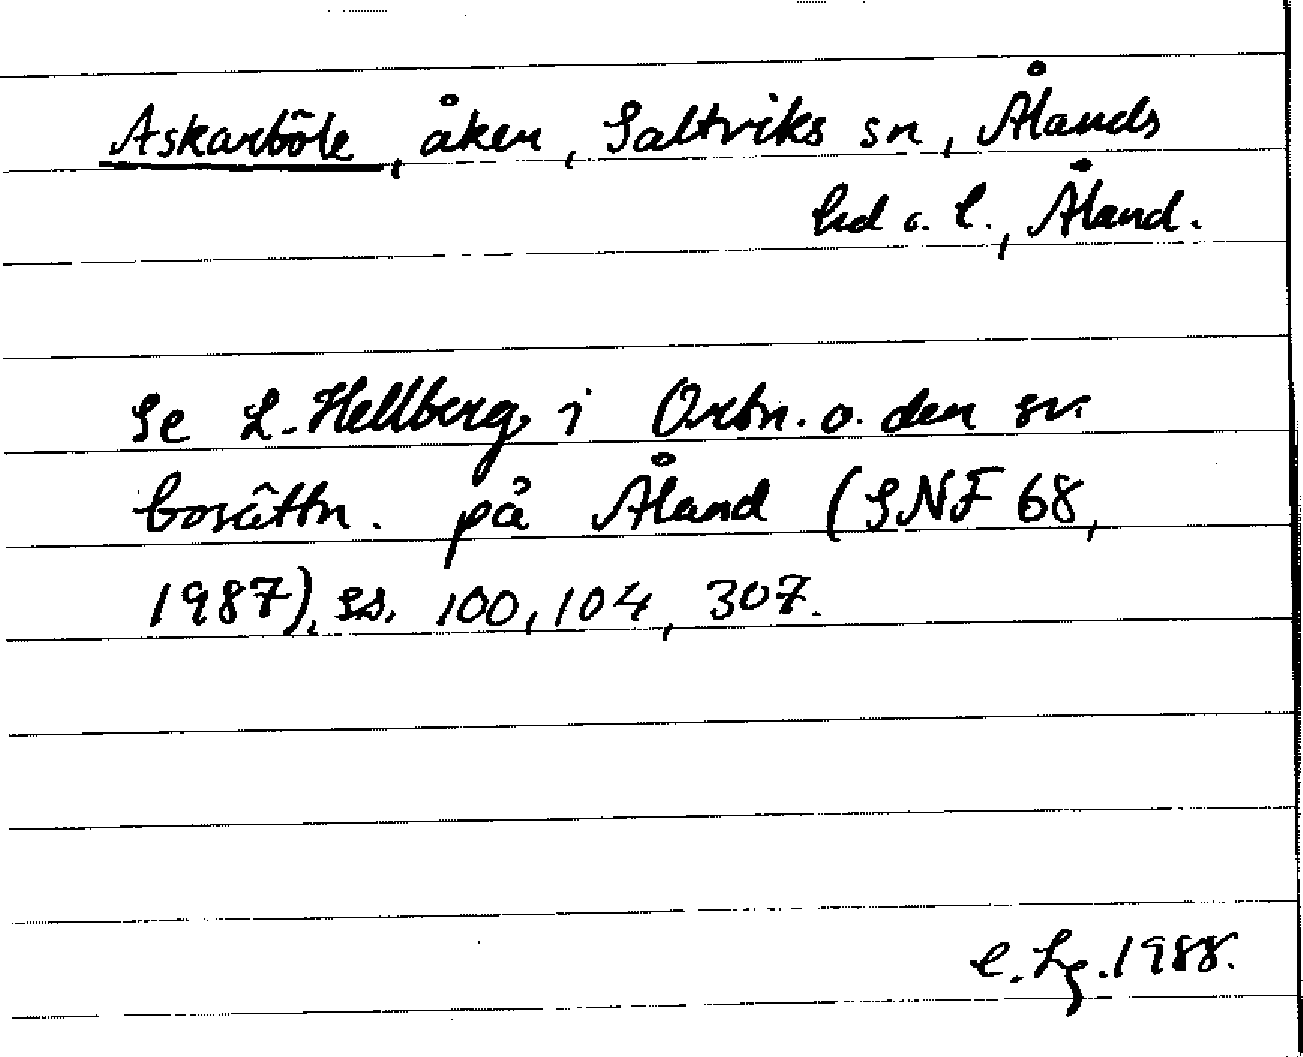 Askarböle, åker, Saltviks sn, Ålands
hd o. l., Åland.
Se L. Hellberg i Ortn. o. den sv.
bosättn. på Åland (SNF 68,
1987), ss. 100, 104, 307.
C. Lg. 1988.